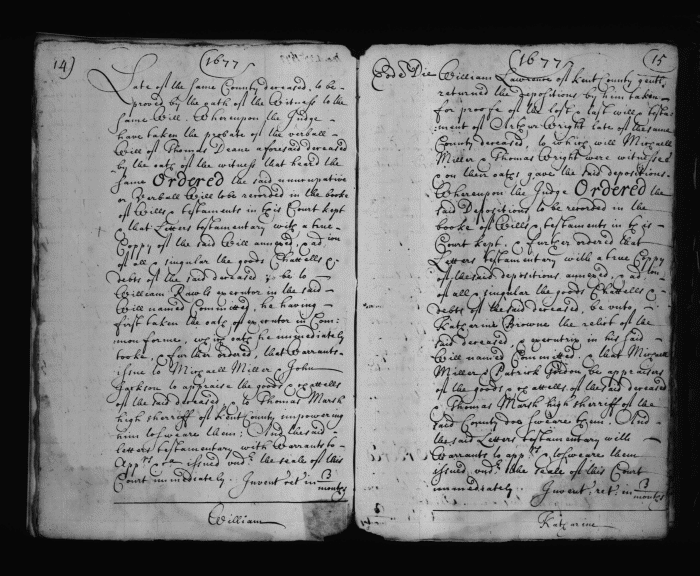 14)
(1677
Late of the same County deceased, to be-
proved by the oath of the Witness to the
same Will. Whereupon the Judge-
have taken the probate of the verball-
Will of Thomas Deane aforesaid deceased
by the oath of the witness that heard the
same Ordered the said nuncupative
or Verball Will to be recorded in the booke
of Wills & testaments in this Court kept
that Letters testamentary with a true-
Coppy of the said Will annexed, & ad ion
of all & singular the goods Chattells &
debts of the said deceased & be to
William Rawls executor in the said-
Will named Committed, he having-
first taken the oath of executor in Com:
mon forme, wch oath he immediately
tooke, & further ordered, that Warrants-
issue to Michaell Miller & John
Jackson to appraise the goods & chattells
of the said deceased, & to Thomas Marsh
high sherriff of Kent County impowering
him to sweare them: And the said-
letters testamentary with Warrants to-
issued undr the seale of this
Court immediately. Invent' ret' in 3
months
William
(1677)
(15
Eod Die William Lawrence of Kent County gentl
returned the depositions by him taken-
for proofe of the last & last will & testa
:ment of Arthur Wright late of the same
County deceased, to which will Michaell
Miller & Thomas Wright were witnesses
& on their oaths gave the said depositions.
Whereupon the Judge Ordered the
said Depositions to be recorded in the
booke of Wills & testaments in this-
Court kept, & further ordered that
Letters testamentary with a true Coppy
of the said depositions annexed, & ad ion
of all & singular the goods Chattells &
debts of the said deceased, be unto-
Katharine Browne the relict of the
said deceased & executrix in his said-
Will named Committed, & that Michaell
Miller & Patrick Gordon be appraisers
of the goods & chattells of the said deceased
& Thomas Marsh high sherriff of the
said County doe sweare them. And
the said Letters testamentary will
Warrants to app & to sweare them
issued undr the seale of this Court
immediately. Invent' ret' in 3
months
Katharine